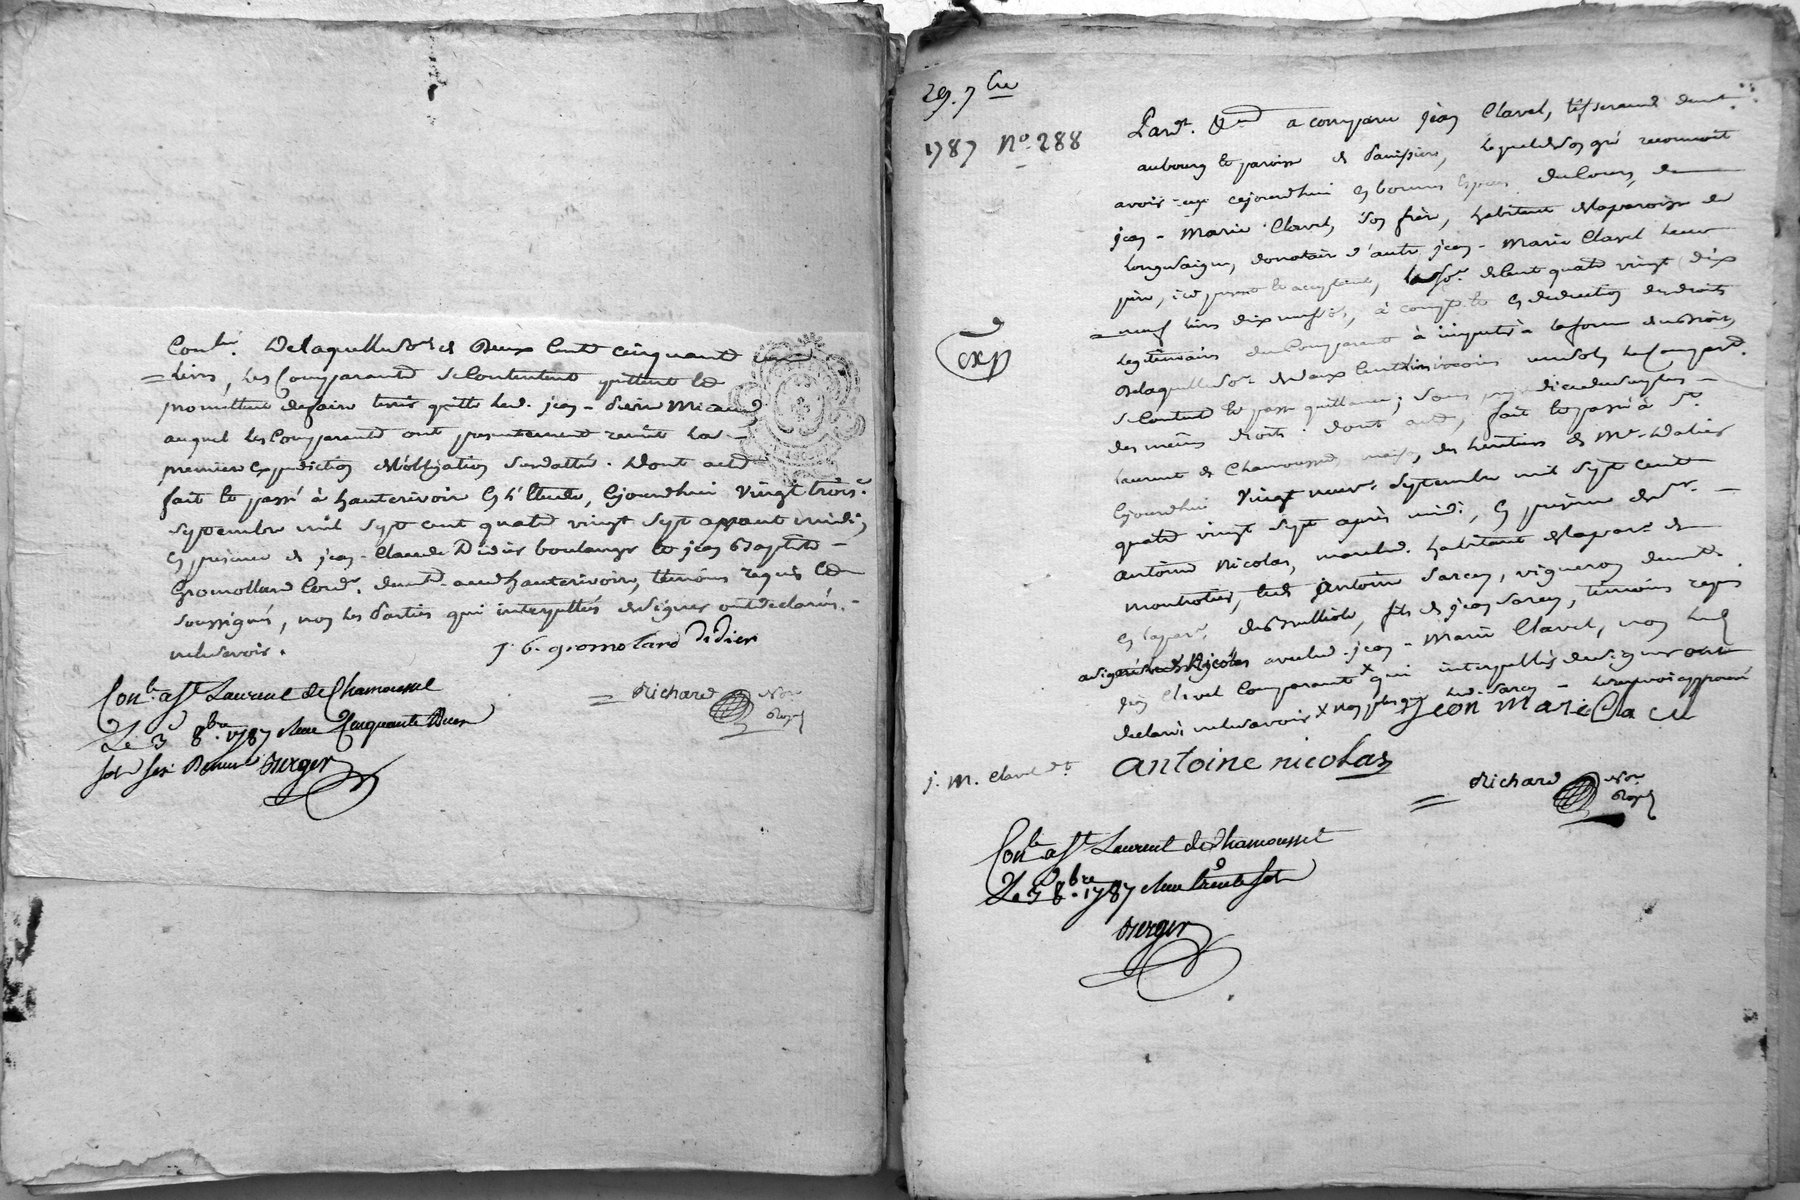 Con.lé. Delaquelle so.e de Deux Cent cinquante une
livres, les Comparants se Contentent quittent et
promettent de faire tenir quitte led. jean-Pierre Micaud
auquel les Comparants ont presentement remit la
premiere expedition de l'obligation surdattée. Dont acte
fait et passé à hauterivoire en l'Etude, Cejourdhui vingt trois.e
septembre mil sept cent quatre vingt sept avant midi,
en presence de jean-Claude Didier boulanger et jean Baptiste
Gromolland Cord.r demt. aud. hauterivoire, temoins requis et
soussignés, non les Parties qui interpellés de signer ont declarés
ne le savoir.
j. b. gromolard Didier
Richard Not.re Royal
Con.le a St Laurent de Chamousset
Le 3 8.bre 1787 Reçu
Berger
29. 7bre
1787 N.o 288
exp
Pard.t a comparu jean Clavel, tisserand demt.
au bourg et paroisse de, lequel de son gré reconnoit
avoir eu cejourdhui en bonnes Especes de Cours, de
jean-Marie Clavel son frère, habitant de la paroisse de
Longesaigne, donataire d'autre jean-Marie Clavel leur
père, ici present et acceptant, la so.e de Cent quatre vingt dix
neuf livres dix neuf sols, à compte et en deduction des droits
legitimaires du Comparant à imputer à la forme du droit,
Delaquelle so.e de deux Cent livres moins un sol, le Comparant
se Contente et passe quittance; sans prejudice du surplus
des mêmes droits. dont acte, fait et passé à St.
Laurent de Chamousset maison des heritiers de M.e
Cejourdhui vingt neuv.e septembre mil sept cent
quatre vingt sept après midi, en presence de s.r
Antoine Nicolas, march.d habitant de la par.e de
Montrotier, et de Antoine Sarcey, vigneron demt.
en la par.e de Brulliole, fils de jean Sarcey, temoins requis
a signé led. Nicolas avec led. jean-Marie Clavel, non led.
jean Clavel Comparant x qui interpellés de signer ont
declaré ne le savoir x non plus que led. Sarcey renvoi approuvé
jean Marie Clavel
antoine nicolas
j. M. Clavel dt.
Richard Not.re Royal
Con.le a St Laurent de Chamousset
Le 3 8.bre 1787 Reçu trente sols
Berger